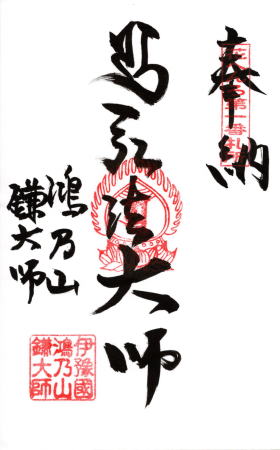 奉納
第一番
弘法大師
鴻乃山
鎌大師
伊豫國
鴻乃山
鎌大師